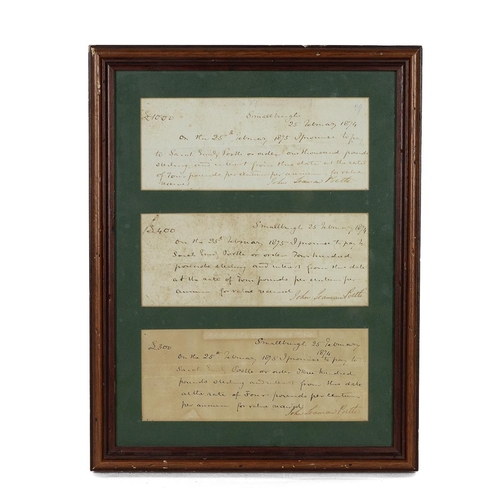 £1000 Smallburgh
25 February 1874
On the 25th February 1875 I promise to pay
to Sarah Emily Postle or order one thousand pounds
sterling and interest from this date at the rate
of Four pounds per centum per annum for value
received John Postle
£400 Smallburgh 25 February 1874
On the 25th February 1875 I promise to pay to
Sarah Emily Postle or order Four hundred
pounds sterling and interest from this date
at the rate of Four pounds per centum per
annum for value received John Postle
£300 Smallburgh 25 February
1874
On the 25th February 1875 I promise to pay to
Sarah Emily Postle or order Three hundred
pounds sterling and interest from this date
at the rate of Four pounds per centum
per annum for value received
John Postle